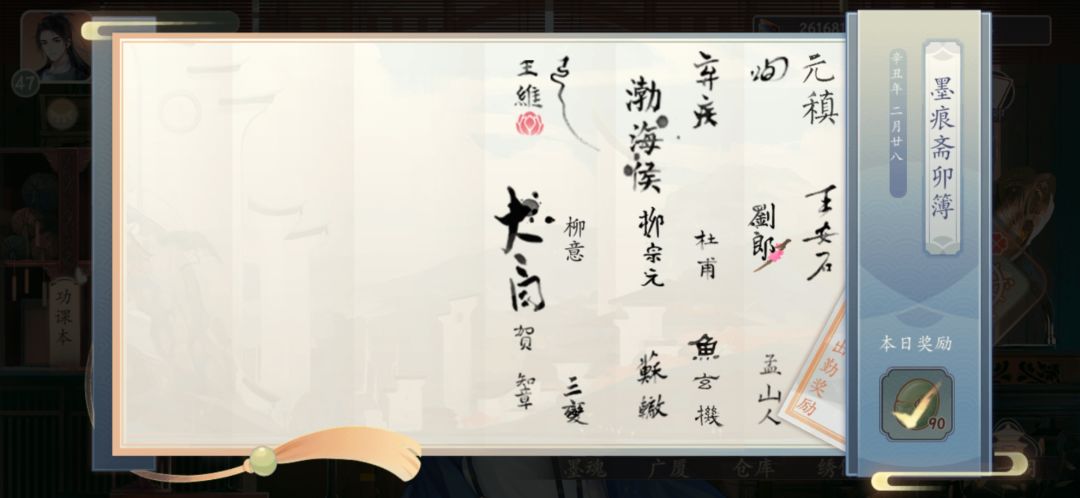 墨痕斋卯簿
辛丑年 二月廿八
本日奖励
90
出勤奖励
元稹
王安石
洵
劉郎
孟山人
弃疾
杜甫
魚玄機
渤海侯
柳宗元
蘇轍
柳意
三變
王維
賀知章
功课本
47
墨魂
广厦
仓库